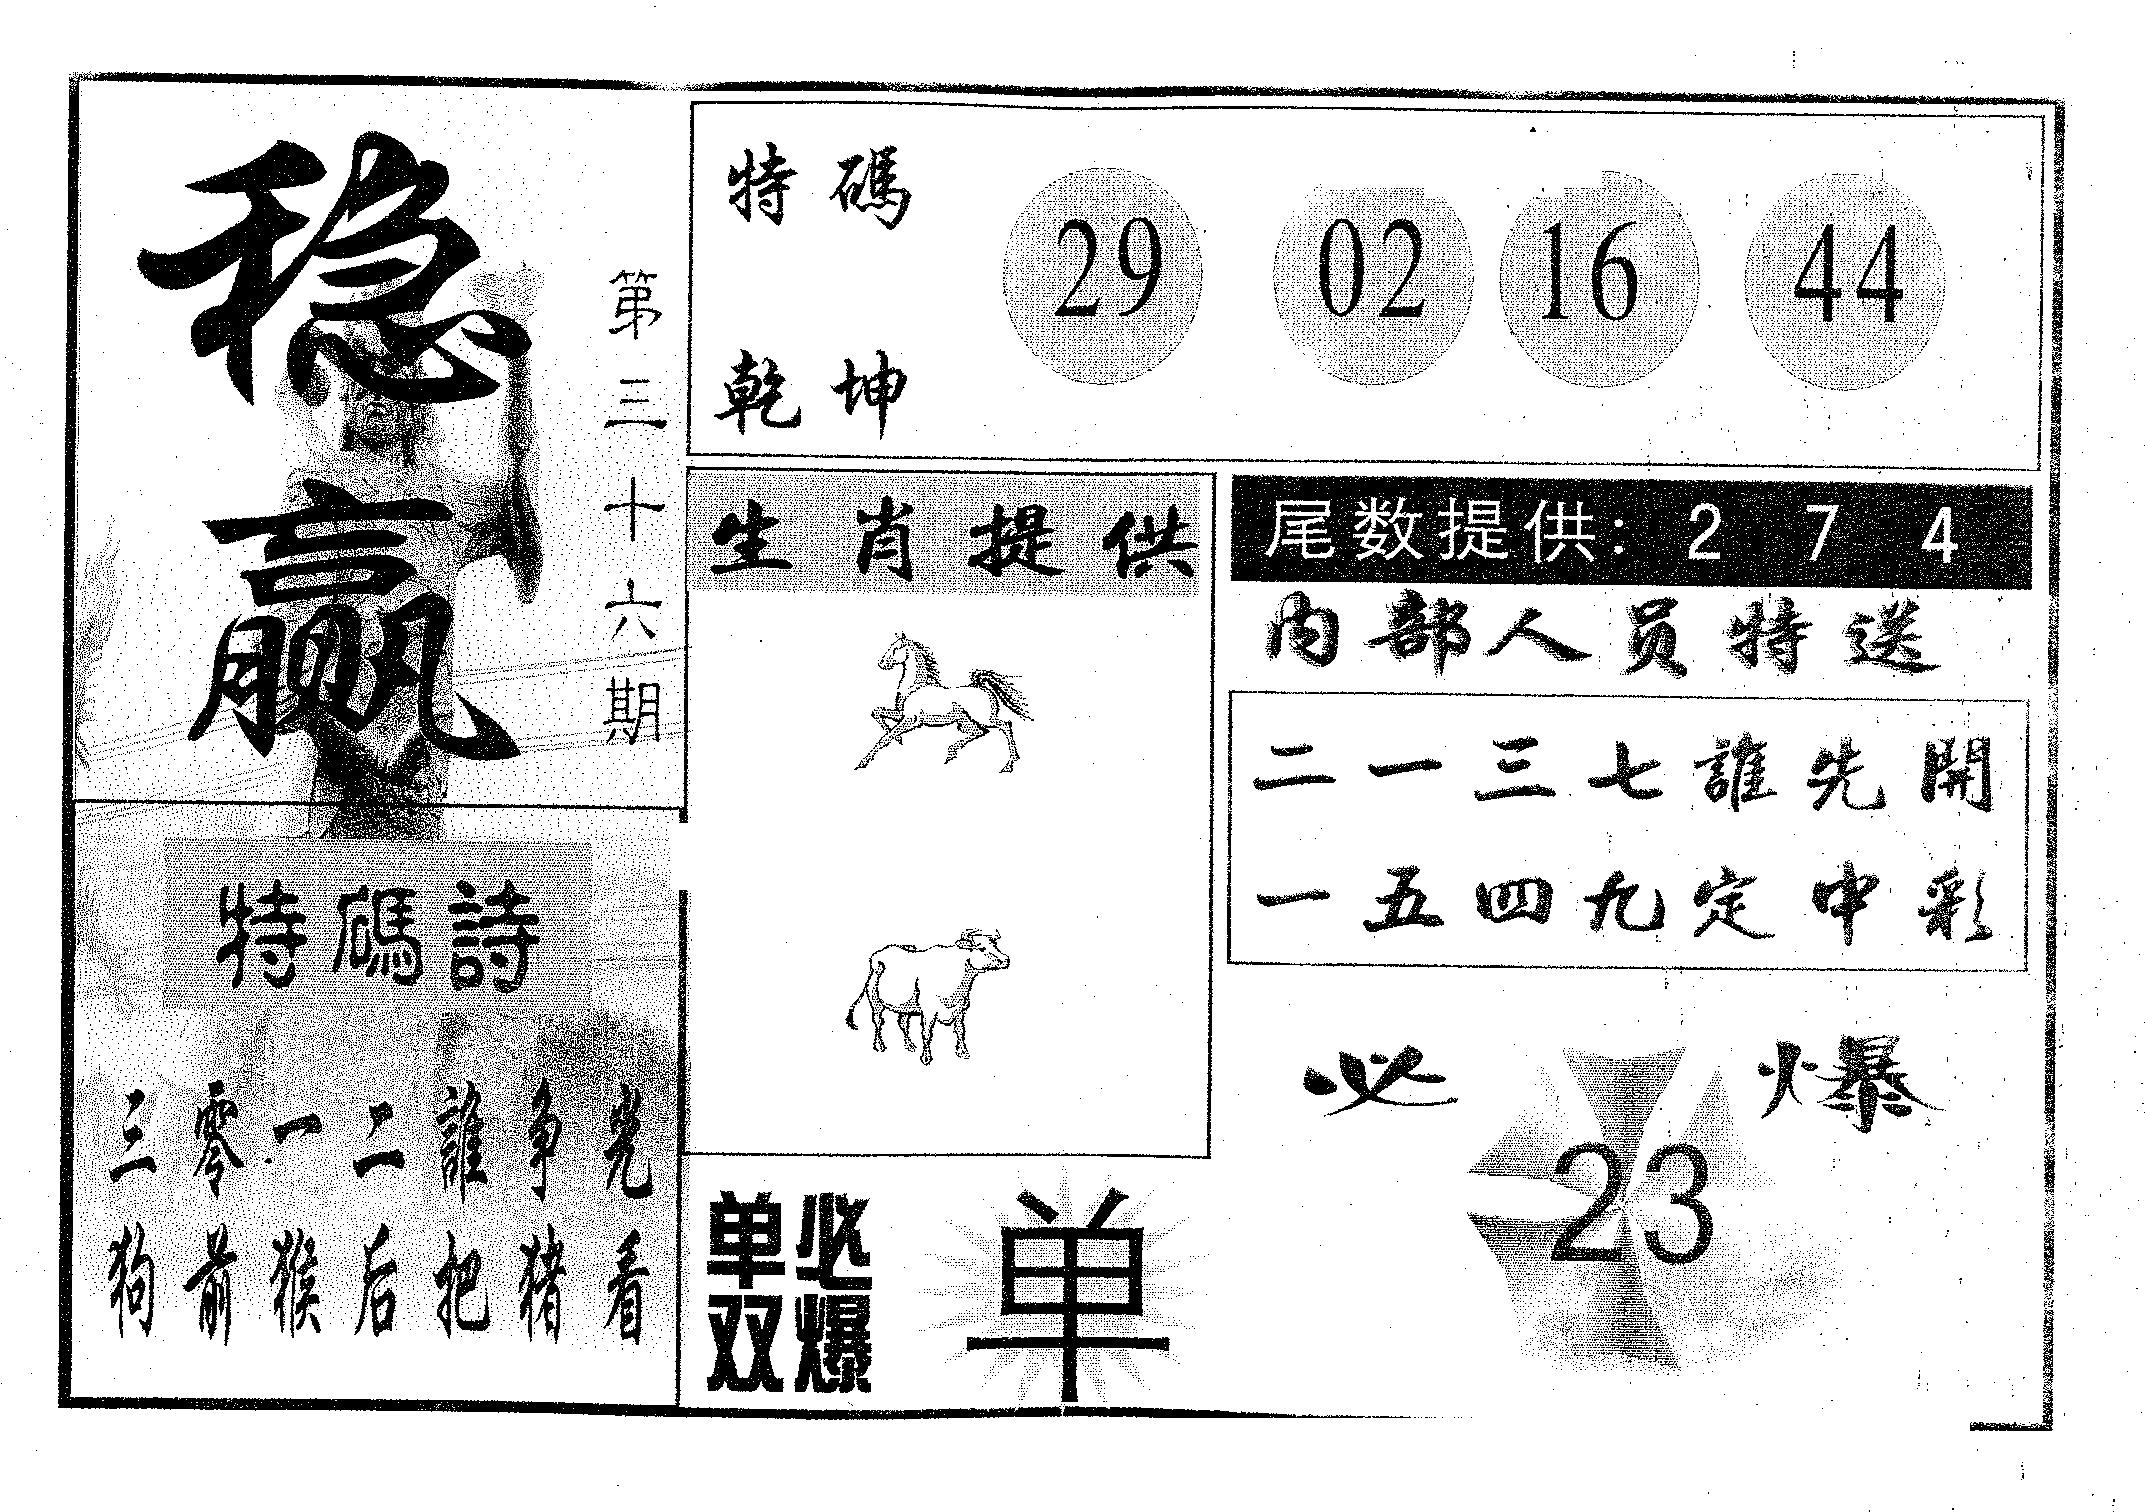 稳赢
第三十六期
特碼
乾坤
29 02 16 44
生肖提供
尾数提供: 2 7 4
内部人员特送
二一三七誰先開
一五四九定中彩
必爆
23
特碼詩
三零一二誰争光
狗前猴后把猪看
单双
必爆
单